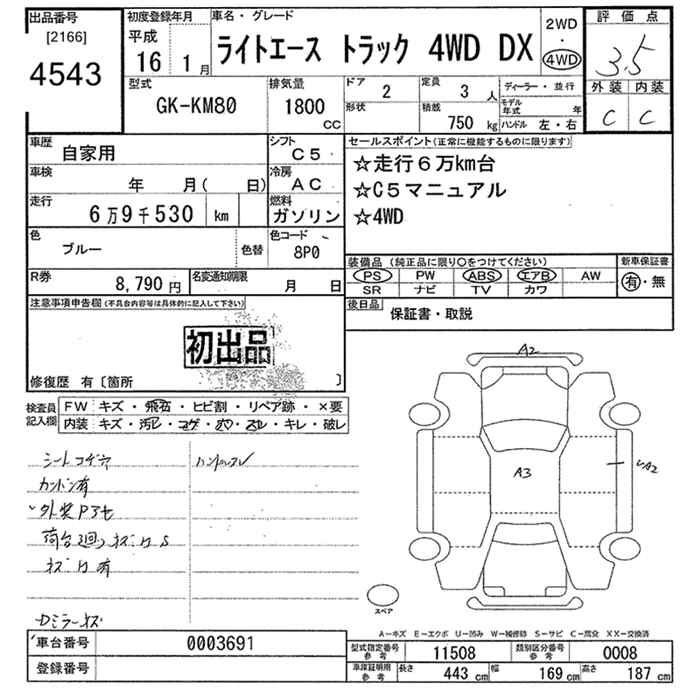 出品番号
[2166]
4543
初度登録年月
平成
16 1月
車名・グレード
ライトエース トラック 4WD DX
2WD
・
4WD
評価点
3.5
外装 内装
C C
型式
GK-KM80
排気量
1800
CC
ドア
2
形状
定員
3 人
積載
750 kg
ディーラー・並行
モデル年式 年
ハンドル 左・右
車歴
自家用
シフト
C5
車検
年 月( 日)
冷房
AC
走行
6万9千530 km
燃料
ガソリン
セールスポイント(正常に機能するものに限ります)
☆走行6万km台
☆C5マニュアル
☆4WD
色
ブルー
色替
色コード
8P0
R券
8,790円
名変通知期限
月 日
装備品(純正品に限り○をつけてください)
PS PW ABS エアB AW
SR ナビ TV カワ
新車保証書
有・無
後日品
保証書・取説
注意事項申告欄(不具合内容等は具体的に記入して下さい)
初出品
修復歴 有〔箇所 〕
検査員記入欄
FW キズ・飛石・ヒビ割・リペア跡・×要
内装 キズ・汚レ・コゲ・穴・スレ・キレ・破レ
シートコゲ穴
ハンドルスレ
外装
荷台廻
有
Dミラーキズ
A2
A3
A2
スペア
A-キズ E-エクボ U-凹み W-補修跡 S-サビ C-腐食 XX-交換済
車台番号
0003691
登録番号
型式指定番号
参考
11508
類別区分番号
参考
0008
車庫証明用
参考
長さ 443 cm 幅 169 cm 高さ 187 cm